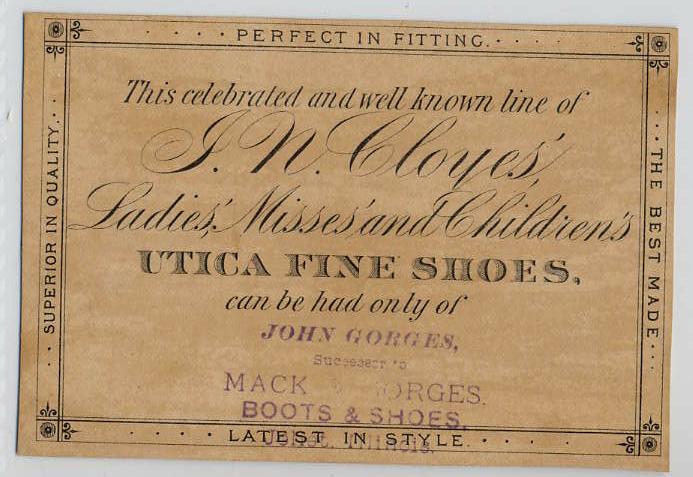 PERFECT IN FITTING.
SUPERIOR IN QUALITY.
THE BEST MADE
This celebrated and well known line of
I. N. Cloyes',
Ladies', Misses' and Children's
UTICA FINE SHOES,
can be had only of
JOHN GORGES,
Successor to
MACK & GORGES.
BOOTS & SHOES,
Joliet, Illinois.
LATEST IN STYLE.